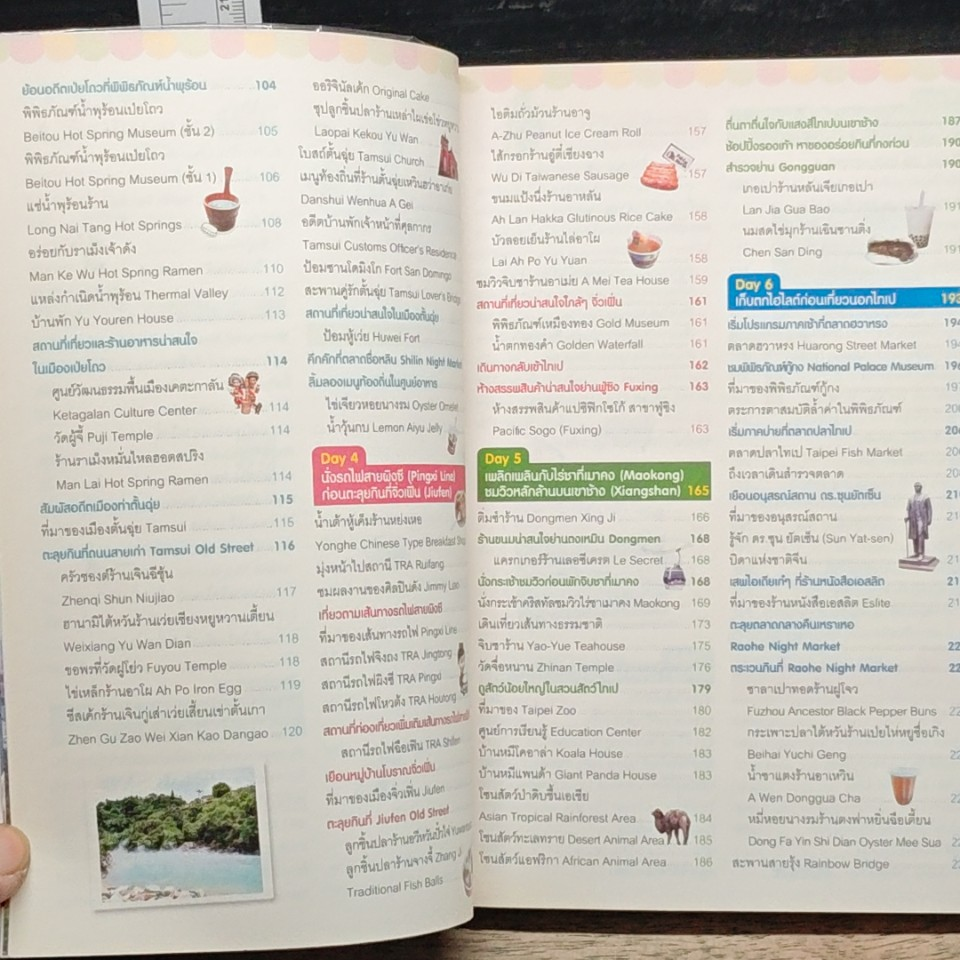 ย้อนอดีตเป่ยโถวที่พิพิธภัณฑ์น้ำพุร้อน 104
พิพิธภัณฑ์น้ำพุร้อนเป่ยโถว
Beitou Hot Spring Museum (ชั้น 2) 105
พิพิธภัณฑ์น้ำพุร้อนเป่ยโถว
Beitou Hot Spring Museum (ชั้น 1) 106
แช่น้ำพุร้อนร้าน
Long Nai Tang Hot Springs 108
อร่อยกับราเม็งเจ้าดัง
Man Ke Wu Hot Spring Ramen 110
แหล่งกำเนิดน้ำพุร้อน Thermal Valley 112
บ้านพัก Yu Youren House 113
สถานที่เที่ยวและร้านอาหารน่าสนใจ
ในเมืองเป่ยโถว 114
ศูนย์วัฒนธรรมพื้นเมืองเคตะกาลัน
Ketagalan Culture Center 114
วัดผู่จี้ Puji Temple 114
ร้านราเม็งหมั่นไหลฮอตสปริง
Man Lai Hot Spring Ramen 114
สัมผัสอดีตเมืองท่าตั้นฉุ่ย 115
ที่มาของเมืองตั้นฉุ่ย Tamsui 115
ตะลุยกินที่ถนนสายเก่า Tamsui Old Street 116
ครัวซองต์ร้านเจินฉีซุ้น
Zhenqi Shun Niujiao 117
ฮานามิไต้หวันร้านเว่ยเซียงหยูหวานเตี้ยน
Weixiang Yu Wan Dian 118
ขอพรที่วัดฝูโย่ว Fuyou Temple 118
ไข่เหล็กร้านอาโผ Ah Po Iron Egg 119
ชีสเค้กร้านเจินกู่เส่าเว่ยเสี้ยนเข่าตั้นเกา
Zhen Gu Zao Wei Xian Kao Dangao 120
ออริจินัลเค้ก Original Cake
ซุปลูกชิ้นปลาร้านเหล่าไผเข่อโข่วหยูหวาน
Laopai Kekou Yu Wan
โบสถ์ตั้นฉุ่ย Tamsui Church
เมนูท้องถิ่นที่ร้านตั้นฉุ่ยเหวินฮว่าอาเก่ย
Danshui Wenhua A Gei
อดีตบ้านพักเจ้าหน้าที่ศุลกากร
Tamsui Customs Officer's Residence
ป้อมซานโดมิงโก Fort San Domingo
สะพานคู่รักตั้นฉุ่ย Tamsui Lover's Bridge
สถานที่เที่ยวน่าสนใจในเมืองตั้นฉุ่ย
ป้อมหู้เว่ย Huwei Fort
คึกคักที่ตลาดซื่อหลิน Shilin Night Market
ลิ้มลองเมนูท้องถิ่นในศูนย์อาหาร
ไข่เจียวหอยนางรม Oyster Omelet
น้ำวุ้นกบ Lemon Aiyu Jelly
Day 4
นั่งรถไฟสายผิงซี (Pingxi Line)
ก่อนตะลุยกินที่จิ่วเฟิ่น (Jiufen)
น้ำเต้าหู้เค็มร้านหย่งเหอ
Yonghe Chinese Type Breakfast
มุ่งหน้าไปสถานี TRA Ruifang
ชมผลงานของศิลปินดัง Jimmy
เที่ยวตามเส้นทางรถไฟสายผิงซี
ที่มาของเส้นทางรถไฟ Pingxi Line
สถานีรถไฟจิงถง TRA Jingtong
สถานีรถไฟผิงซี TRA Pingxi
สถานีรถไฟโหวต้ง TRA Houtong
สถานที่ท่องเที่ยวเพิ่มเติมเส้นทางรถไฟ
สถานีรถไฟฉือเฟิน TRA Shifen
เยือนหมู่บ้านโบราณจิ่วเฟิ่น
ที่มาของเมืองจิ่วเฟิ่น Jiufen
ตะลุยกินที่ Jiufen Old Street
ลูกชิ้นปลาร้าน
ลูกชิ้นปลาร้านจางจี้ Zhang Ji
Traditional Fish Balls
ไอติมถั่วม้วนร้านอาจู
A-Zhu Peanut Ice Cream Roll 157
ไส้กรอกร้านอู๋ตี้เซียงฉาง
Wu Di Taiwanese Sausage 157
ขนมแป้งนึ่งร้านอาหลัน
Ah Lan Hakka Glutinous Rice Cake 158
บัวลอยเย็นร้านไล่อาโผ
Lai Ah Po Yu Yuan 158
ชมวิวจิบชาร้านอาเม่ย A Mei Tea House 159
สถานที่เที่ยวน่าสนใจใกล้ๆ จิ่วเฟิ่น 161
พิพิธภัณฑ์เหมืองทอง Gold Museum 161
น้ำตกทองคำ Golden Waterfall 161
เดินทางกลับเข้าไทเป 162
ห้างสรรพสินค้าน่าสนใจย่านฟู่ซิง Fuxing 163
ห้างสรรพสินค้าแปซิฟิกโซโก้ สาขาฟู่ซิง
Pacific Sogo (Fuxing) 163
Day 5
เพลิดเพลินกับไร่ชาที่เมาคง (Maokong)
ชมวิวหลักล้านบนเขาช้าง (Xiangshan) 165
ติ่มซำร้าน Dongmen Xing Ji 166
ร้านขนมน่าสนใจย่านตงเหมิน Dongmen 168
แครกเกอร์ร้านเลอซีเครต Le Secret 168
นั่งกระเช้าชมวิวก่อนพักจิบชาที่เมาคง 168
นั่งกระเช้าคริสทัลชมวิวไร่ชาเมาคง Maokong 169
เดินเที่ยวเส้นทางธรรมชาติ 173
จิบชาร้าน Yao-Yue Teahouse 175
วัดจื่อหนาน Zhinan Temple 176
ดูสัตว์น้อยใหญ่ในสวนสัตว์ไทเป 179
ที่มาของ Taipei Zoo 180
ศูนย์การเรียนรู้ Education Center 182
บ้านหมีโคอาล่า Koala House 183
บ้านหมีแพนด้า Giant Panda House 183
โซนสัตว์ป่าดิบชื้นเอเชีย
Asian Tropical Rainforest Area 184
โซนสัตว์ทะเลทราย Desert Animal Area 185
โซนสัตว์แอฟริกา African Animal Area 186
ตื่นตาตื่นใจกับแสงสีไทเปบนเขาช้าง 187
ช้อปปิ้งรองเท้า หาของอร่อยกินที่กงก่วน 190
สำรวจย่าน Gongguan 190
เกอเปาร้านหลันเจียเกอเปา
Lan Jia Gua Bao 191
นมสดไข่มุกร้านเฉินซานติ่ง
Chen San Ding 191
Day 6
เก็บตกไฮไลต์ก่อนเที่ยวนอกไทเป 193
เริ่มโปรแกรมภาคเช้าที่ตลาดฮวาหรง 194
ตลาดฮวาหรง Huarong Street Market 194
ชมพิพิธภัณฑ์กู้กง National Palace Museum 196
ที่มาของพิพิธภัณฑ์กู้กง 197
ตระการตาสมบัติล้ำค่าในพิพิธภัณฑ์
เริ่มภาคบ่ายที่ตลาดปลาไทเป
ตลาดปลาไทเป Taipei Fish Market
ถึงเวลาเดินสำรวจตลาด
เยือนอนุสรณ์สถาน ดร.ซุนยัตเซ็น
ที่มาของอนุสรณ์สถาน
รู้จัก ดร.ซุน ยัตเซ็น (Sun Yat-sen)
บิดาแห่งชาติจีน
เสพไอเดียเก๋ๆ ที่ร้านหนังสือเอสลิต
ที่มาของร้านหนังสือเอสลิต Eslite
ตะลุยตลาดกลางคืนเหราเหอ
Raohe Night Market
ตระเวนกินที่ Raohe Night Market
ซาลาเปาทอดร้านฝูโจว
Fuzhou Ancestor Black Pepper Buns
กระเพาะปลาไต้หวันร้านเป่ยไห่หยูชื่อเกิง
Beihai Yuchi Geng
น้ำชาแตงร้านอาเหวิน
A Wen Donggua Cha
หมี่หอยนางรมร้านตงฟาหยินฉือเตี้ยน
Dong Fa Yin Shi Dian Oyster Mee Sua
สะพานสายรุ้ง Rainbow Bridge